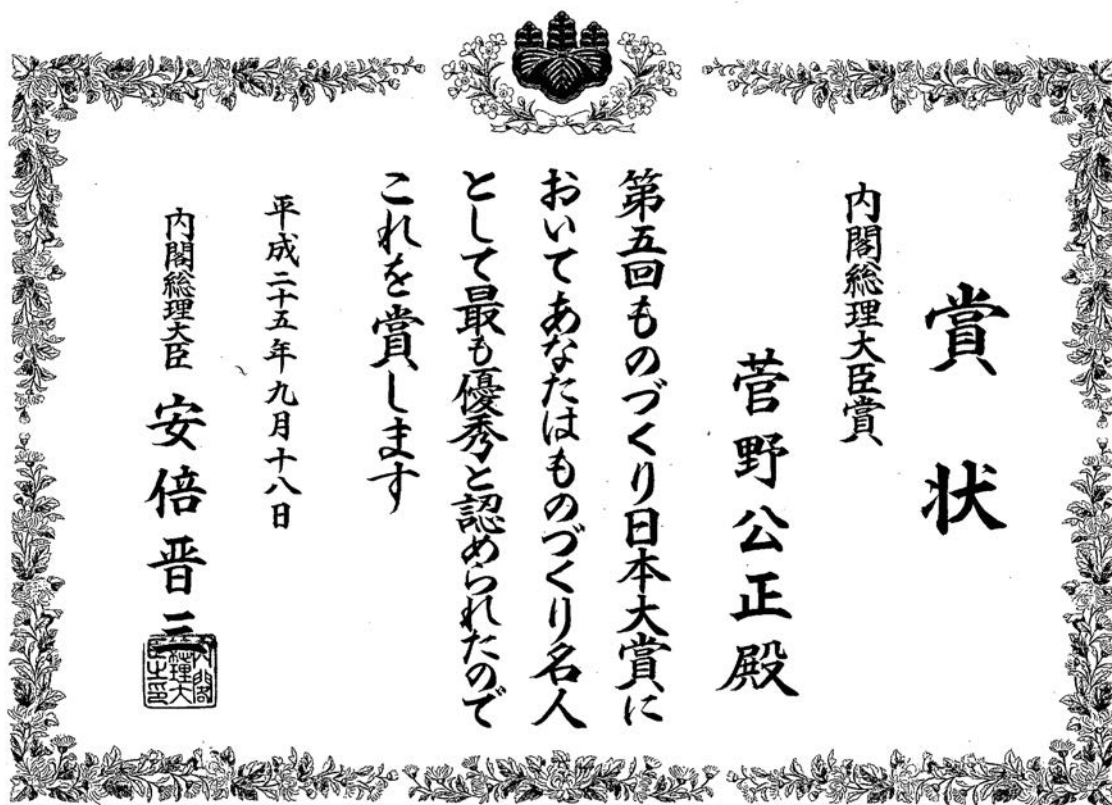 賞状
内閣総理大臣賞
菅野公正殿
第五回ものづくり日本大賞に
おいてあなたはものづくり名人
として最も優秀と認められたので
これを賞します
平成二十五年九月十八日
内閣総理大臣 安倍晋三
内閣総理大臣之印